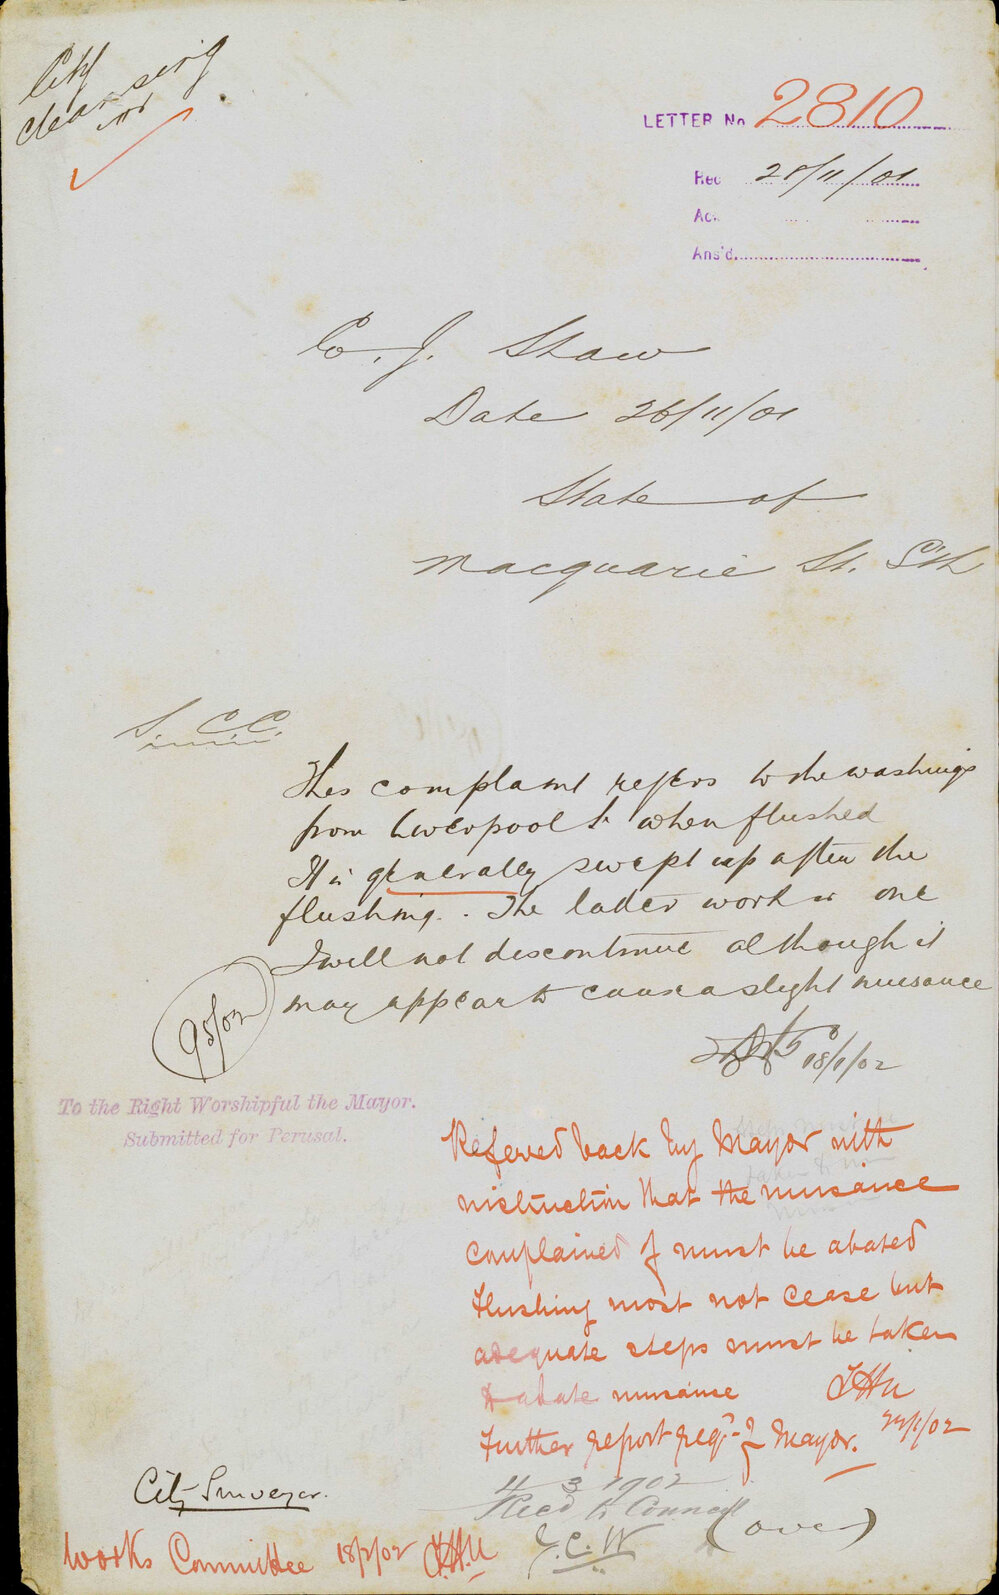 City
cleansing
LETTER No 2810
Rec 28/11/01
Ac.
Ans'd.
C. J. Shaw
Date 26/11/01
State of
Macquarie St. Sth
S. C C.
This complaint refers to the washings
from Liverpool St when flushed
It is generally swept up after the
flushing. The latter work is one
I will not discontinue although it
may appear to cause a slight nuisance
18/1/02
95/02
To the Right Worshipful the Mayor.
Submitted for Perusal.
Refered back by Mayor with
instruction that the nuisance
complained of must be abated
Flushing most not cease but
adequate steps must be taken
to abate nuisance
Further report req'd by Mayor. 22/1/02
4 3 1902
City Surveyor.
Recd to Council
(over)
Works Committee 18/2/02
J. C. W